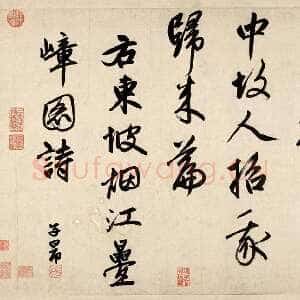 中故人招我
歸来篇
右東坡烟江疊
嶂圖詩
子昂